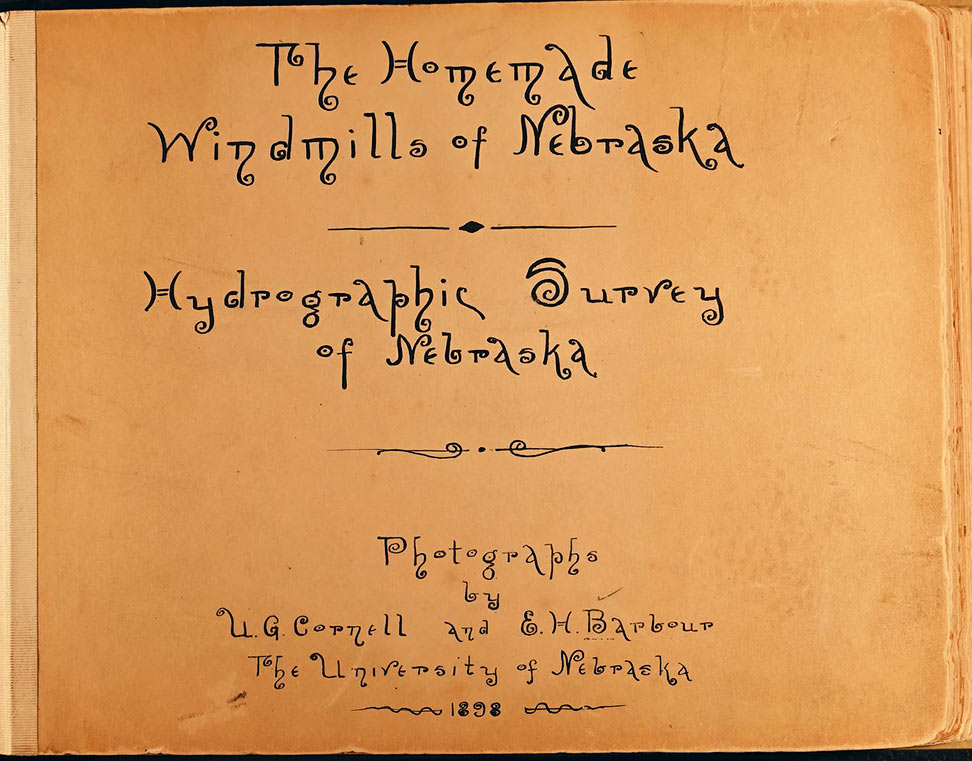 The Homemade
Windmills of Nebraska
Hydrographic Survey
of Nebraska
Photographs
by
U.G. Cornell and E.H. Barbour
The University of Nebraska
1898